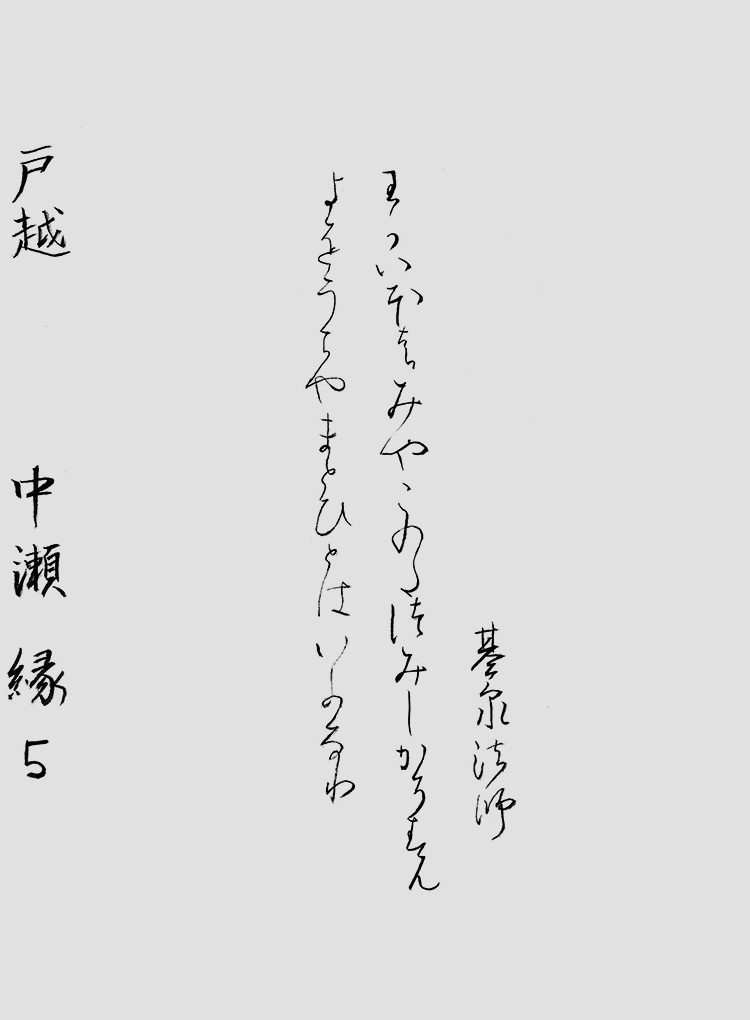 基泉法師
わかいほはみやこのたつみしかそすむ
よをうちやまとひとはいふなり
戸越 中瀬 縁 5